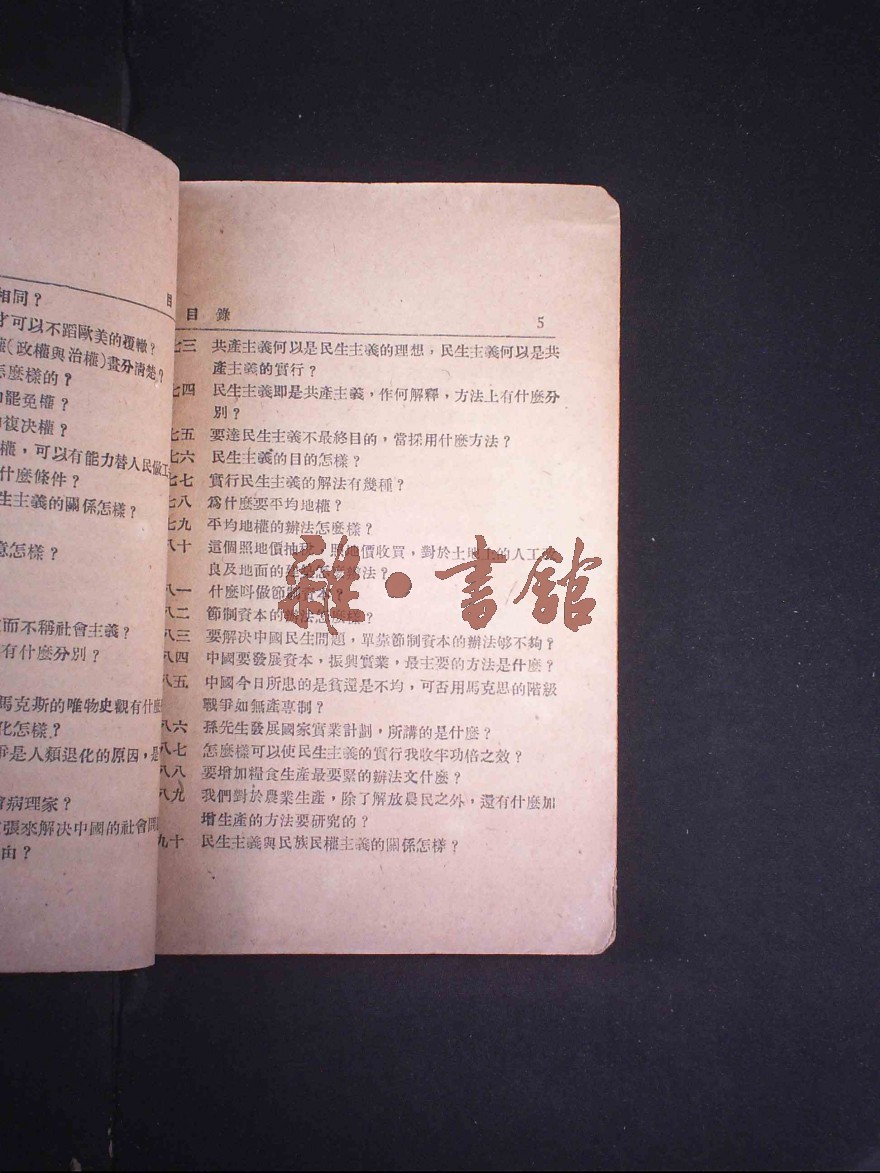 相同？
才可以不蹈歐美的覆轍？
權（政權與治權）畫分清楚？
怎麼樣的？
罷免權？
複决權？
權，可以有能力替人民做工
什麼條件？
生主義的關係怎樣？
意怎樣？
而不稱社會主義？
有什麼分別？
馬克斯的唯物史觀有什麼
化怎樣？
爭是人類退化的原因，是
會病理家？
張來解决中國的社會問題
由？
目
目錄 5
七三 共產主義何以是民生主義的理想，民生主義何以是共
產主義的實行？
七四 民生主義即是共產主義，作何解釋，方法上有什麼分
別？
七五 要達民生主義不最終目的，當採用什麼方法？
七六 民生主義的目的怎樣？
七七 實行民生主義的解法有幾種？
七八 爲什麼要平均地權？
七九 平均地權的辦法怎麼樣？
八十 這個照地價抽稅，照地價收買，對於土地上的人工改
良及地面的是怎麼辦法？
八一 什麼叫做節制資本？
八二 節制資本的辦法怎麼樣？
八三 要解决中國民生問題，單靠節制資本的辦法够不夠？
八四 中國要發展資本，振興實業，最主要的方法是什麼？
八五 中國今日所患的是貧還是不均，可否用馬克思的階級
戰爭如無產專制？
八六 孫先生發展國家實業計劃，所講的是什麼？
八七 怎麼樣可以使民生主義的實行我收半功倍之效？
八八 要增加糧食生產最要緊的辦法文什麼？
八九 我們對於農業生產，除了解放農民之外，還有什麼加
增生產的方法要研究的？
九十 民生主義與民族民權主義的關係怎樣？
雜·書館